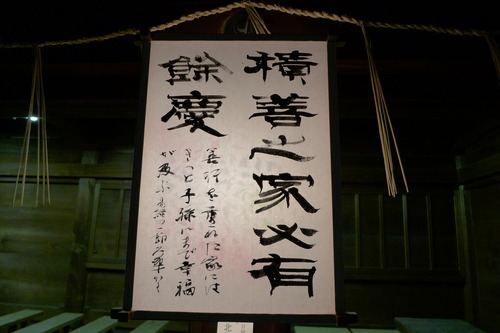 積善之家必有
餘慶
善行を重ねた家には
きっと子孫にまで幸福
が及ぶ
北